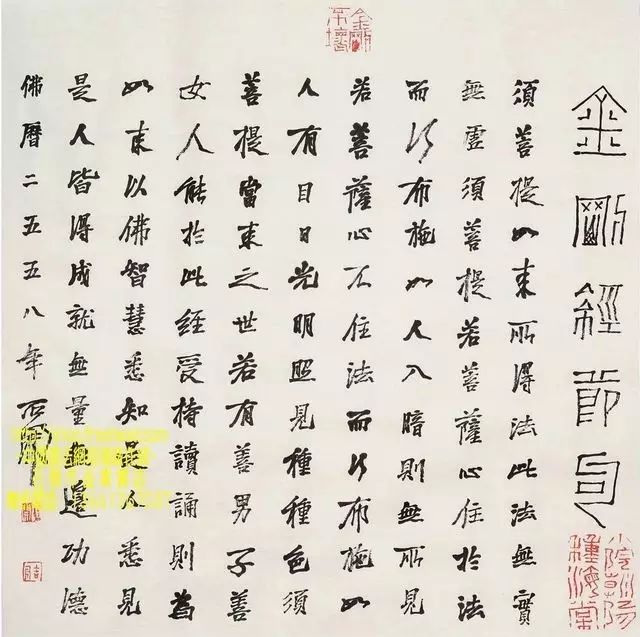 金剛不壞
金剛經節句
小院朝陽
種海棠
須菩提如來所得法此法無實
無虛須菩提若菩薩心住於法
而行布施如人入暗則無所見
若菩薩心不住法而行布施如
人有目日光明照見種種色須
菩提當來之世若有善男子善
女人能於此經受持讀誦則為
如來以佛智慧悉知是人悉見
是人皆得成就無量無邊功德
佛曆二五五八年